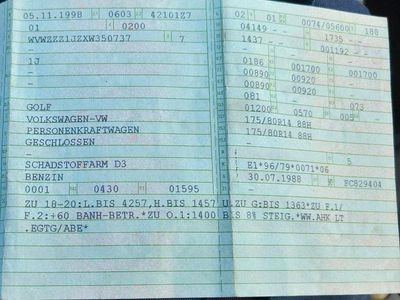 05.11.1998 0603 42101Z7
01 0200
WVWZZZ1JZXW350737 7
-
1J
-
GOLF
VOLKSWAGEN-VW
PERSONENKRAFTWAGEN
GESCHLOSSEN
-
SCHADSTOFFARM D3
BENZIN
0001 0430 01595
02 01 0074/05600 188
04149 - - 1735 - -
1437 - - 001192 - -
- -
0186 001700 001700
00890 00920
00890 00920
081 - - 073
01200 0570 005
175/80R14 88H
175/80R14 88H
-
- 5
E1*96/79*0071*06
30.07.1988 FC829404
ZU 18-20:L.BIS 4257,H.BIS 1457 U.ZU G:BIS 1363*ZU F.1/
F.2:+60 BANH-BETR.*ZU O.1:1400 BIS 8% STEIG.*WW.AHK LT
.EGTG/ABE*